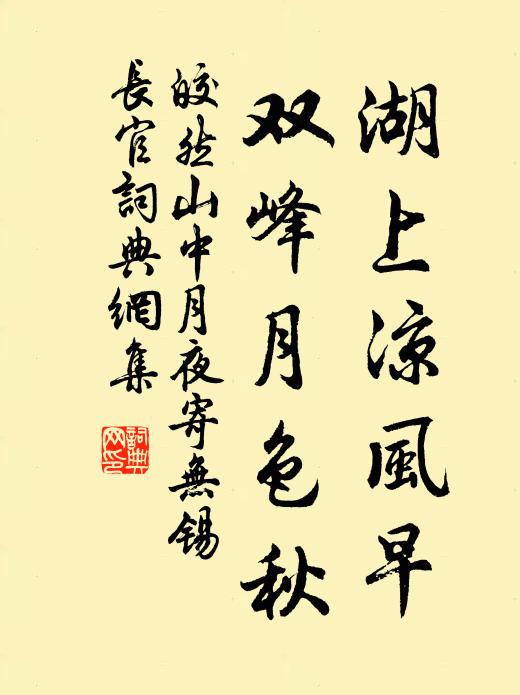 湖上凉風早
双峰月色秋
皎然山中月夜寄無锡
長官詞典網集
詞典
网印